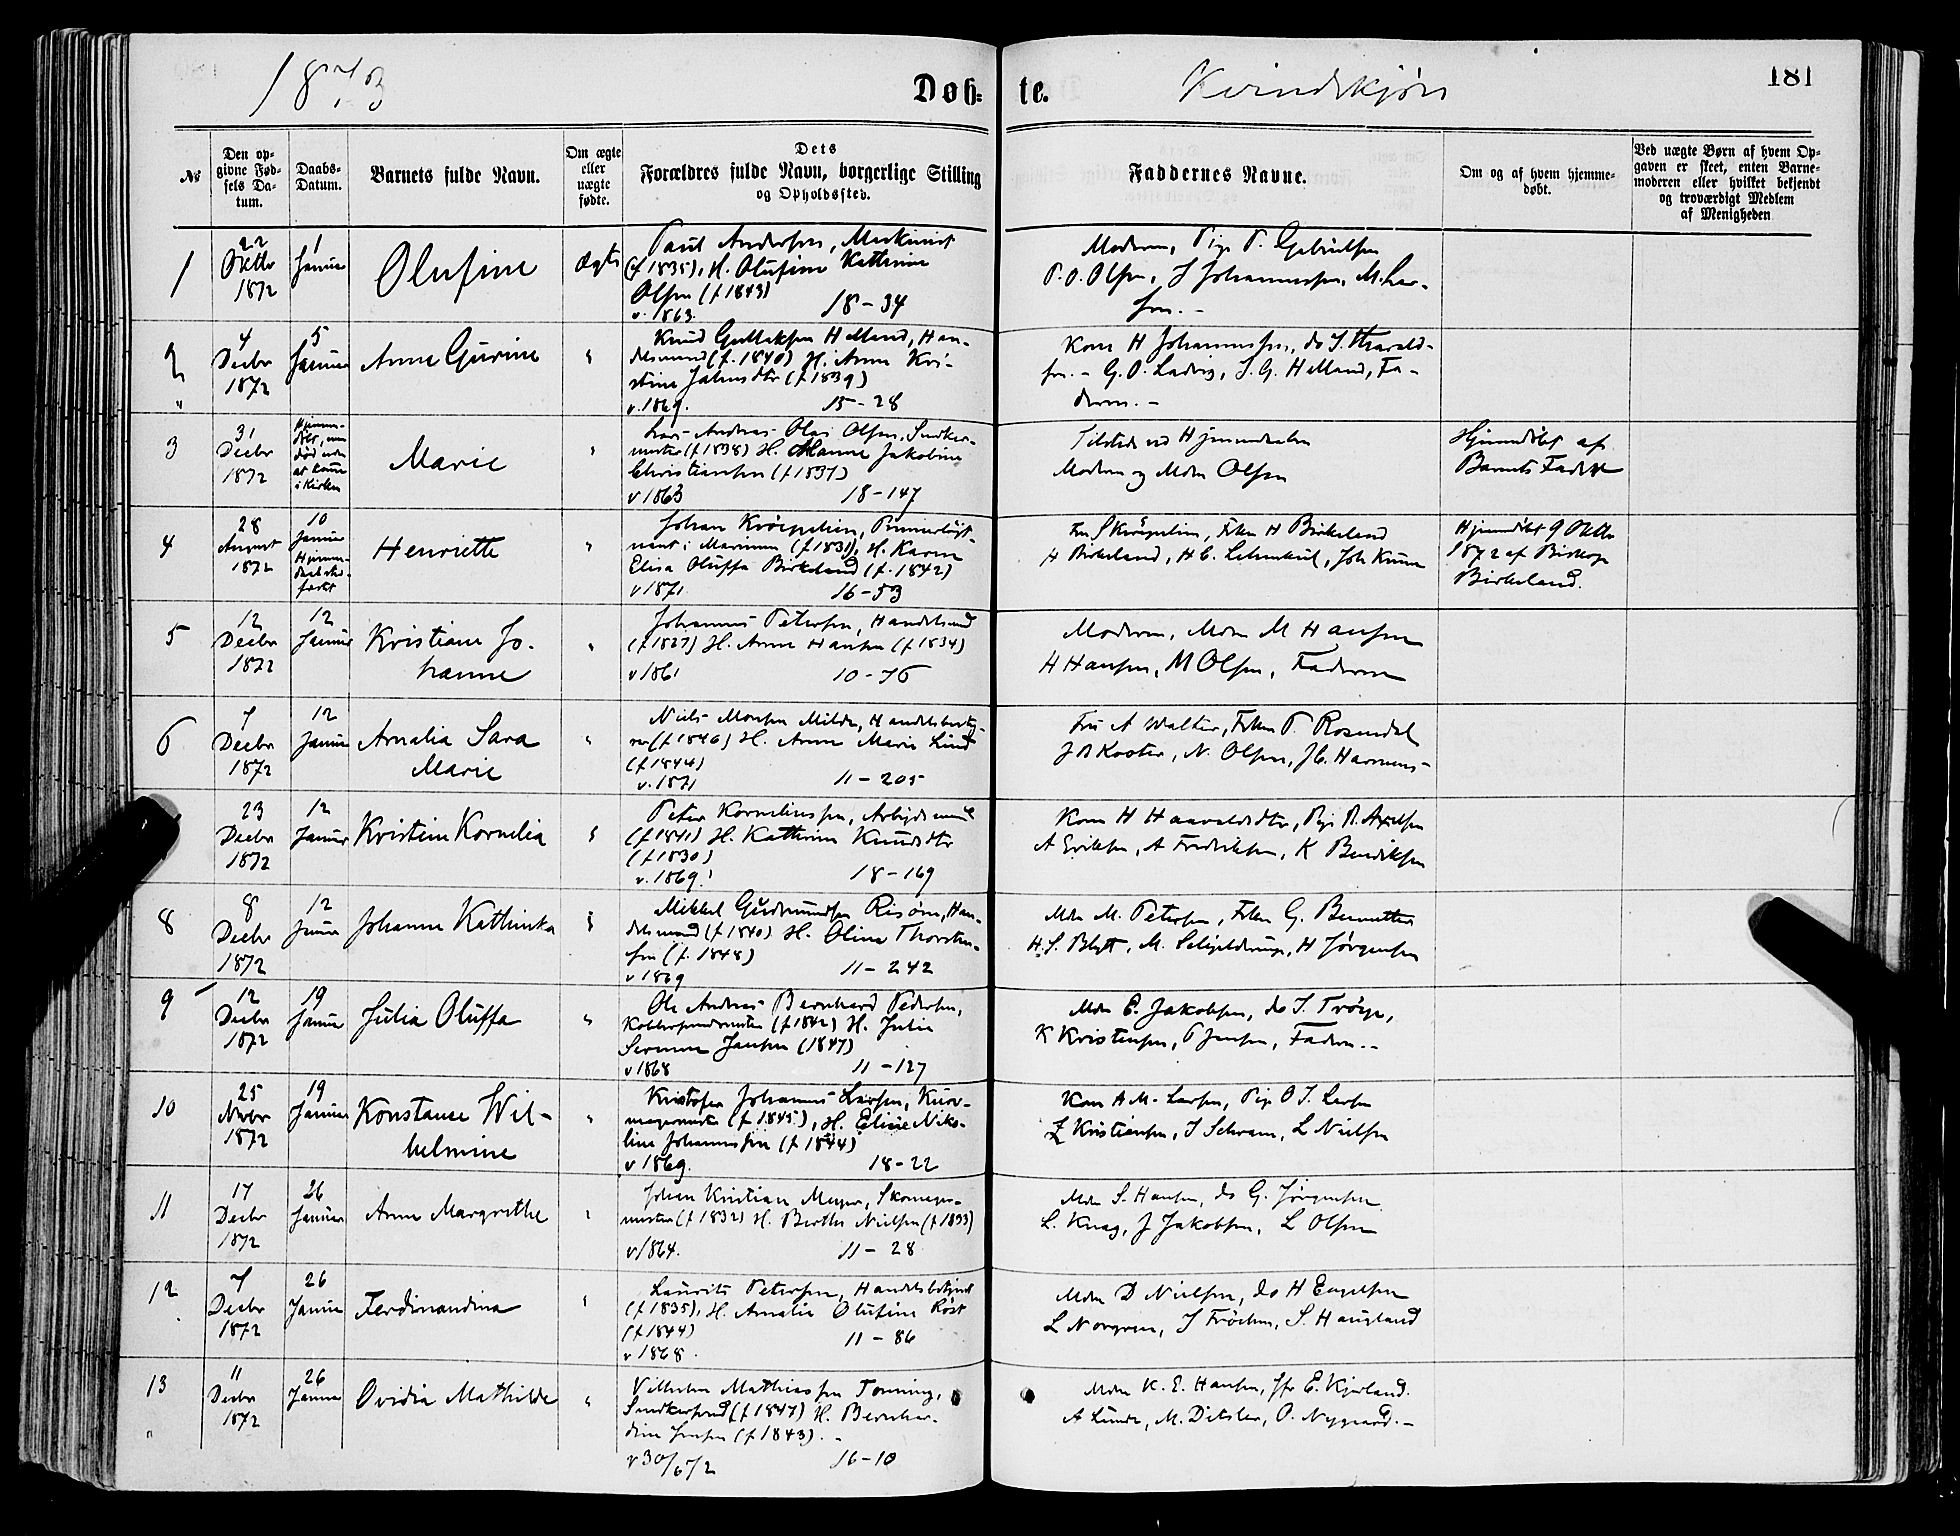 1873
Døb-
te.
Kvindekjøn
181
No
Den op-
givne Fød-
sels Da-
tum.
Daabs-
Datum.
Barnets fulde Navn.
Om ægte
eller
uægte
fødte.
Dets
Forældres fulde Navn, borgerlige Stilling
og Opholdssted.
Faddernes Navne.
Om og af hvem hjemme-
døbt.
Ved uægte Børn af hvem Op-
gaven er skeet, enten Barne-
moderen eller hvilket bekjendt
og troværdigt Medlem
af Menigheden
1
22
Oktbr
1872
1
Januar
Olufine
Ægte
Paul Andersen, Maskinist
(f 1835), H. Olufine Kathrine
Olsen (f 1843)
v. 1863. 18-34
Moderen, Pige P. Gabrielsen
P. O. Olsen, J Johannessen, M. Lar-
sen.-
2
4
Decbr
1872
5
Januar
Anne Gurine
"
Knud Gullaksen Helland, Han-
delsmand (f. 1840) H. Anne Kri-
stine Jakobsdtr (f 1839)
v. 1869. 15-28
Kone H Johannessen, do I. Harald-
sen.- G. O. Ladvig, J. G. Helland, Fa-
deren.-
3
31
Decbr
1872
Hjemme-
døbt, men
død uden
at komme
i Kirken
Marie
"
Lars Andreas Olai Olsen, Snedker-
mester (f 1838) H. Hanne Jakobine
Christiansen (f 1837)
v 1863 18-147
Tilstede ved Hjemmedaaben
Moderen og Mdm Olsen
Hjemmedøbt af
Barnets Fader
4
28
August
1872
10
Januar
Hjemme-
daab stad-
fæstet
Henriette
"
Johan Krøepelien, Premierløjt-
nant i Marinen (f 1831), H. Karen
Elisa Oluffa Birkeland (f. 1842)
v 1871. 16-53
Fru S Krøepelien, Frken H Birkeland
H Birkeland, H C. Lehmkuhl, Joh
Hjemmedøbt 9 Oktbr
1872 af Biskop
Birkeland.
5
12
Decbr
1872
12
Januar
Kristiane Jo-
hanne
"
Johannes Petersen, Handelsmd
(f 1827) H. Anne Hansen (f 1834)
v 1861 10-76
Moderen, Mdm M Hansen
H Hansen, M Olsen, Faderen
6
7
Decbr
1872
12
Januar
Amalia Sara
Marie
"
Niels Monsen Milde, Handelsbestyr-
er (f 1846) H. Anne Marie Lund
(f 1844)
v. 1871 11-205
Fru A Walter, Frken P. Rosendal
J B Koster, N. Olsen, J C. Harmens
23
Decbr
1872
12
Januar
Kristine Kornelia
"
Peter Korneliussen, Arbejdsmand
(f 1841) H. Kathrine Knudsdtr
(f 1830)
v. 1869. 18-169
Kone H Haavaldsdtr, Pige R. Axelsen
A Eriksen, A Fredriksen, K Bendiksen
8
8
Decbr
1872
12
Januar
Johanne Kathinka
"
Mikkel Gudmundsen Risøen, Han-
delsmand (f 1840) H. Oline Thorsten-
sen (f. 1848)
v 1869 11-242
Mdm M. Petersen, Frken G. Bennetter
H. S. Blytt, M. Schjelderup, H Jørgensen
9
12
Decbr
1872
19
Januar
Julia Oluffa
"
Ole Andreas Bernhard Pedersen,
Kobberslagermester (f 1842) H. Julie
Jansen (1847)
v 1868 11-127
Mdm E. Jakobsen, do J. Trøye,
K Kristensen, P Jensen, Faderen.-
10
25
Novbr
1872
19
Januar
Konstanse Wil-
helmine
"
Kristofer Johannes Larsen, Kurv-
magermester (f 1845), H. Eline Niko-
line Johannessen (f 1844)
v 1869. 18-22
Kone A M. Larsen, Pige O J. Larsen
Z Kristensen, J Schram, L Nielsen
11
17
Decbr
1872
26
Januar
Anne Margrethe
"
Johan Kristian Meyer, Skomager-
mester (f 1832) H. Berthe Nielsen (f 1833)
v 1864. 11-28
Mdm S. Hansen, do G. Jørgensen
L. Knag, J Jakobsen, L Olsen
12
7
Decbr
1872
26
Januar
Ferdinandina
"
Laurits Petersen, Handelsbetjent
(f 1835), H. Amalia Olufine Røst
(f 1844)
v 1868. 11-86
Mdm D Nielsen, do H Engelsen
L Norgren, J Frøchen, S. Haugland
13
11
Decbr
1872
26
Januar
Ovidia Mathilde
"
Vilhelm Mathiassen Tonning,
Snedkersvend (f 1847) H. Bernhar-
dine Jensen (f 1843).-
v 30/6 72 16-10
Mdm K. E. Hansen, Jfr E. Kjerland.
A Lunde, M. Ditsler, O. Nygaard.-